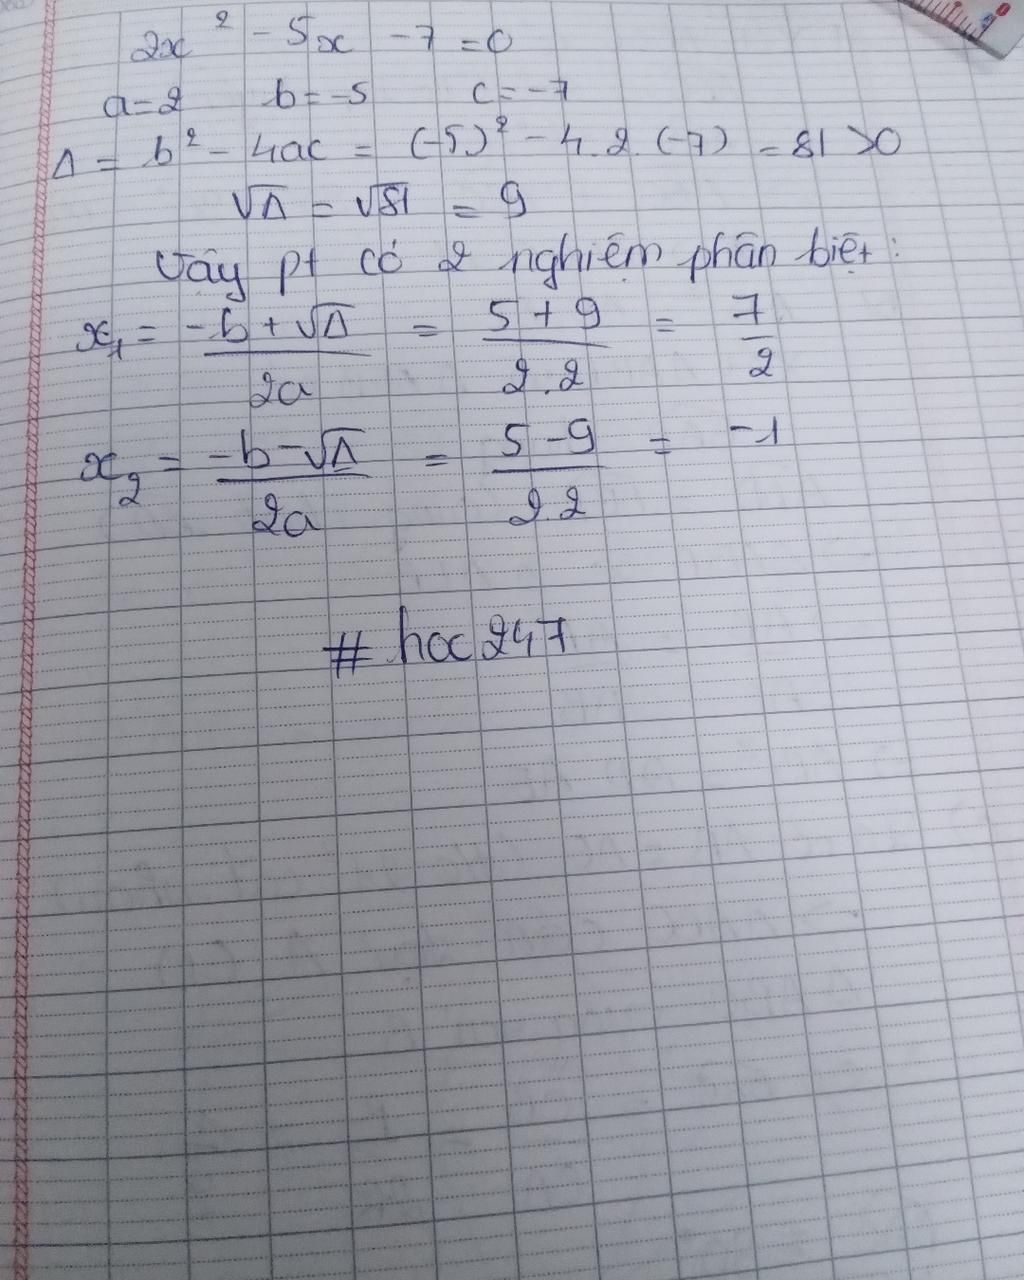 2x² - 5x - 7 = 0
a = 2 b = -5 c = -7
Δ = b² - 4ac = (-5)² - 4.2.(-7) = 81 > 0
√Δ = √81 = 9
Vậy pt có 2 nghiệm phân biệt:
x₁ = (-b + √Δ)/(2a) = (5 + 9)/(2.2) = 7/2
x₂ = (-b - √Δ)/(2a) = (5 - 9)/(2.2) = -1
# hoc247